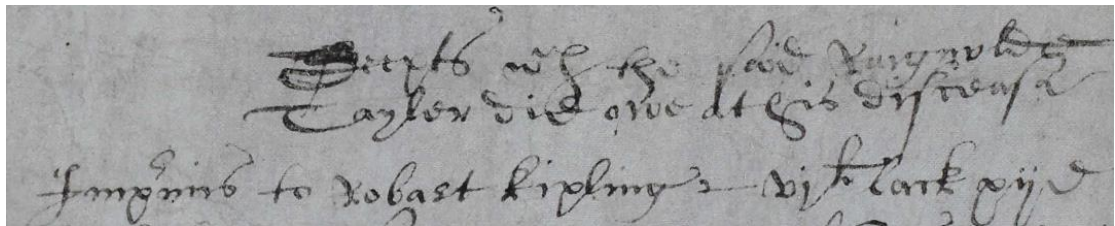 Deepts wch the said Raignolde
Tayler did owe at his disscease
Imprimis to Robart Kipling vjli lack xijd